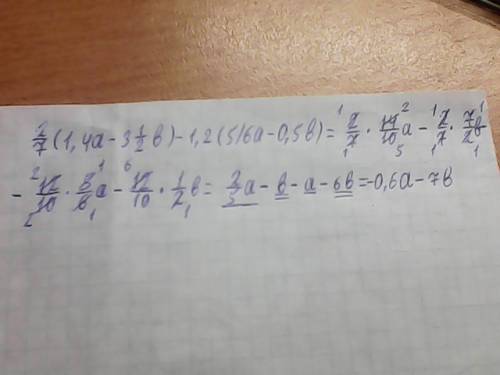 2/7 (1,4a - 3 1/2 b) - 1,2 (5/6a - 0,5b) = 2/7 · 14/10 a - 2/7 · 7/2 b
- 12/10 · 5/6 a - 12/10 · 1/2 b = 2/5 a - b - a - 6b = -0,6a - 7b